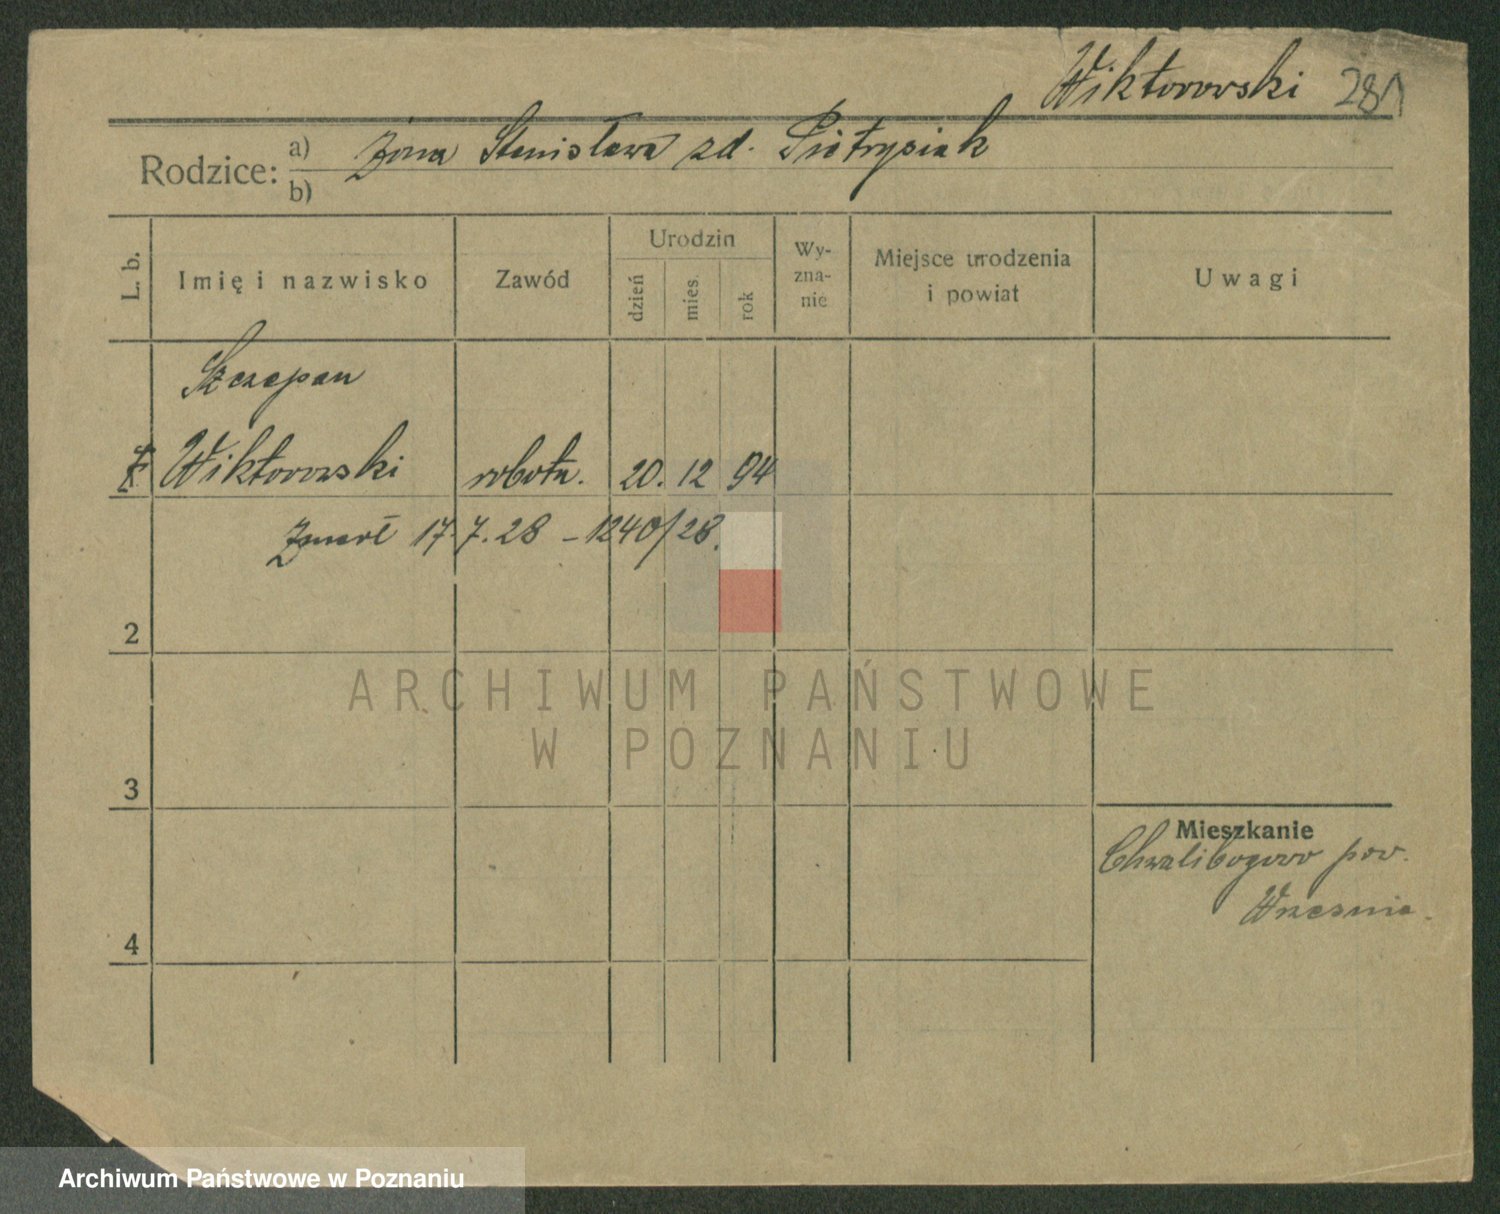 Wiktorowski 281
Rodzice:
a) żona Stanisława zd. Piotrysiak
b)
L. b.
Imię i nazwisko
Zawód
Urodzin
dzień
mies.
rok
Wy-
zna-
nie
Miejsce urodzenia
i powiat
Uwagi
Szczepan
Wiktorowski robotn. 20. 12 94
Zmarł 17.7.28 – 1240/28.
2
3
4
Mieszkanie
Chwalibogowo pow.
Wrzesnia.
ARCHIWUM PAŃSTWOWE
W POZNANIU
Archiwum Państwowe w Poznaniu